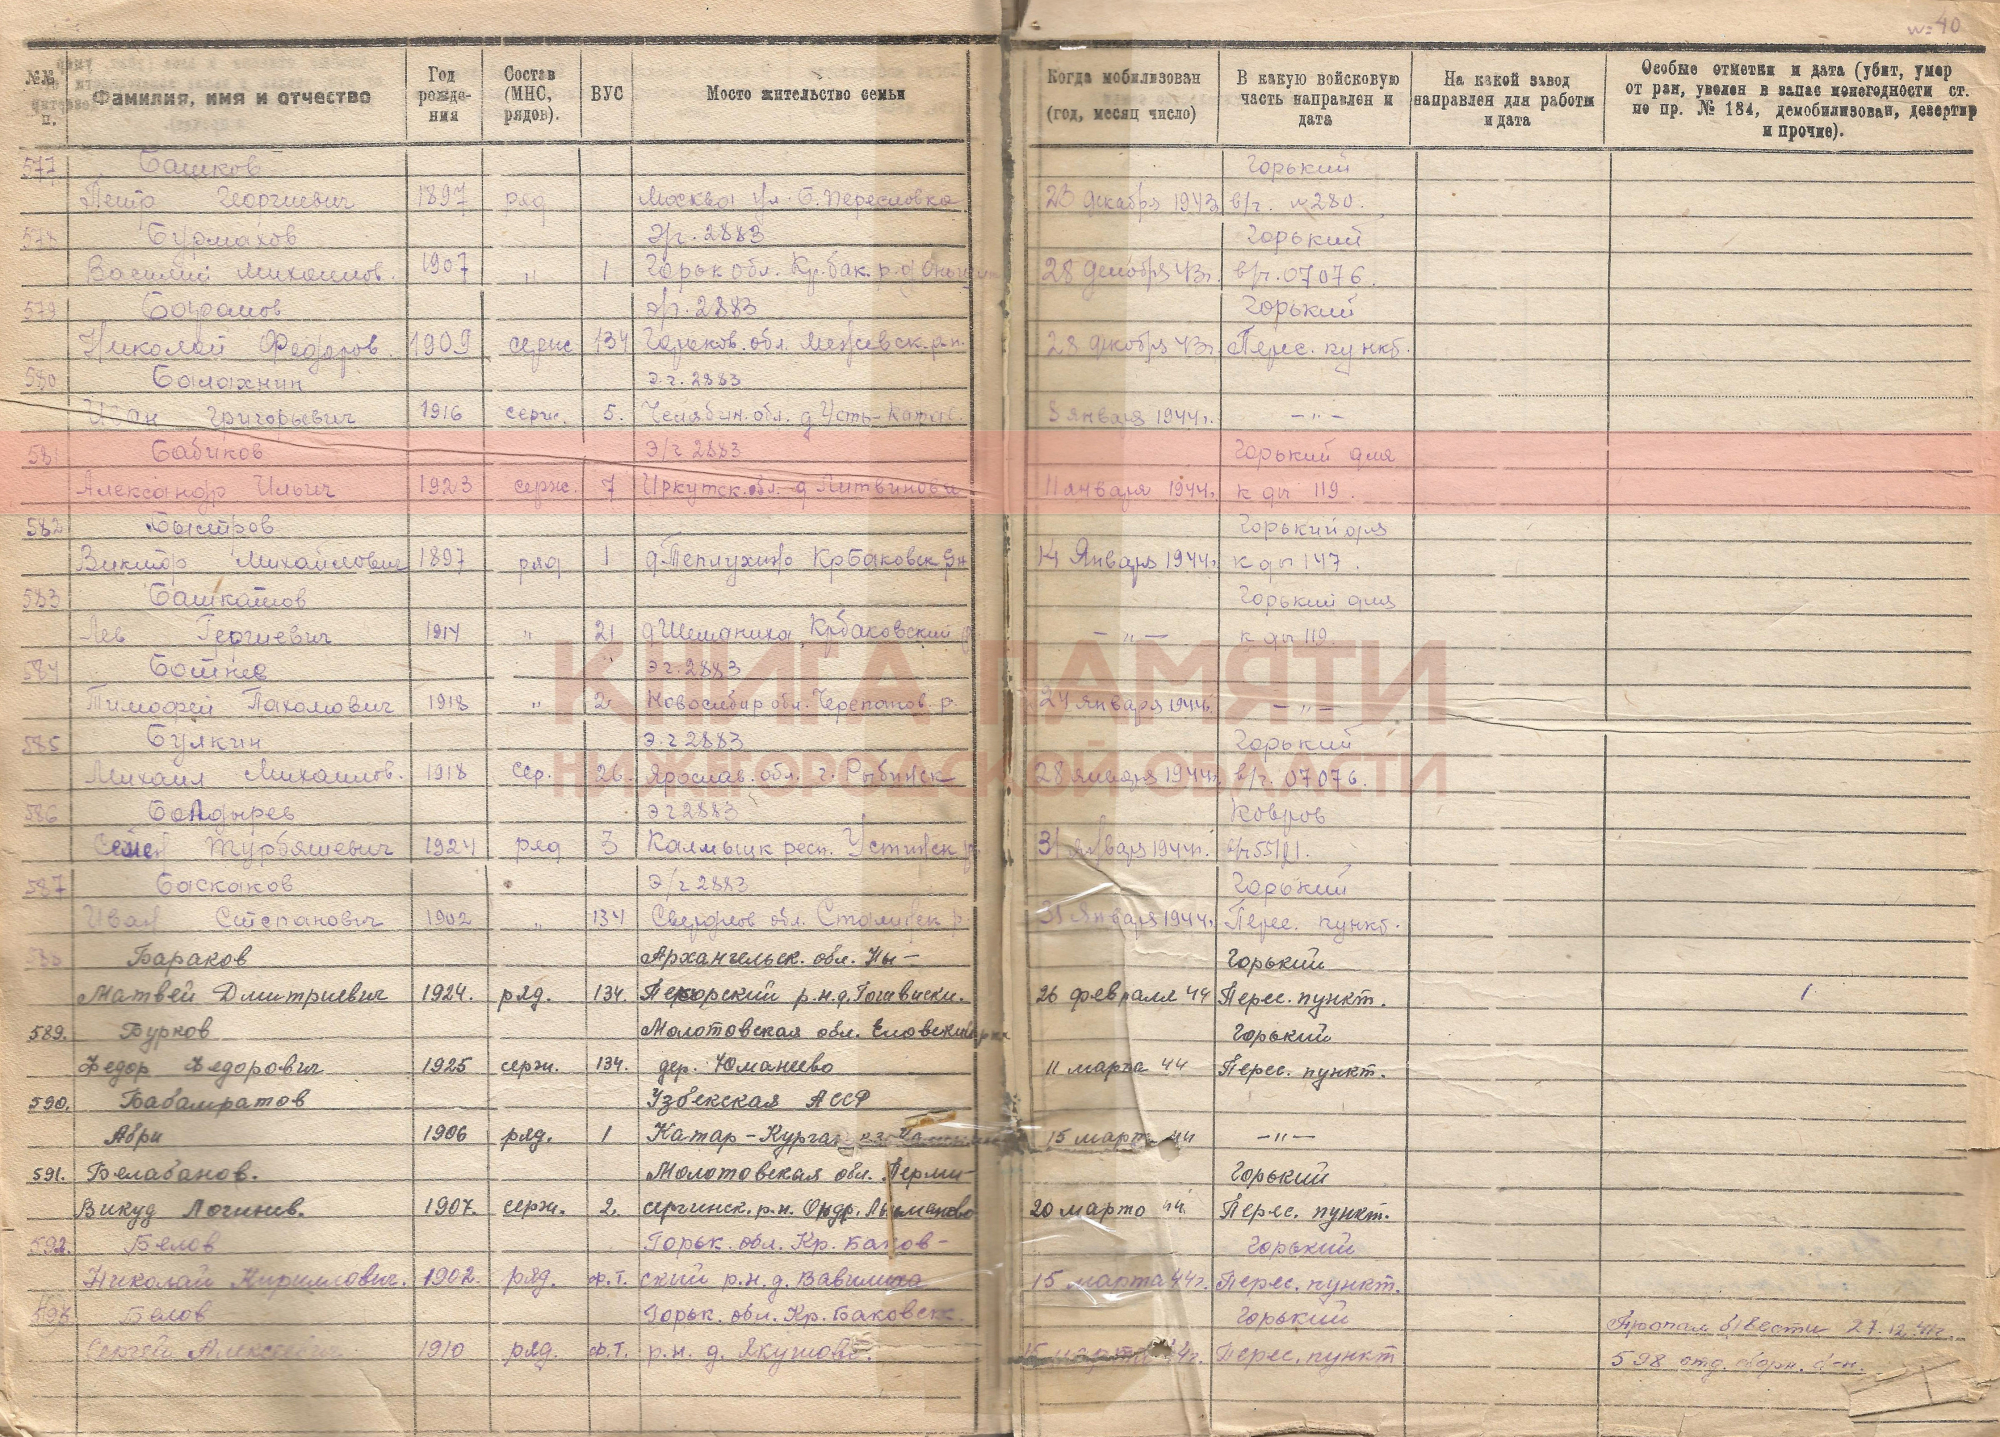 № 40
№№ п. п. Фамилия, имя и отчество Год рождения Состав (МНС, рядов). ВУС Мосто жительство семьи Когда мобилизован (год, месяц число) В какую войсковую часть направлен и дата На какой завод направлен для работы и дата Особые отметки и дата (убит, умер от ран, уволен в запас по негодности ст. по пр. № 184, демобилизован, дезертир и прочие).
577 Башков Горький
Петр Георгиевич 1897 ряд Москва ул. Б. Переславка 23 декабря 1943 в/ч. №280.
578 Бурмахов Э/г. 2883 Горький
Василий Михайлов. 1907 " 1 Горьк обл. Кр. бак. р. 28 декабря 43г. в/ч. 07076.
579 э/г. 2883 Горький
Николай Федоров 1909 серж 134 Горьков. обл. р-н. 28 декабря 43г. Перес. пункт.
580 Балахнин э.г. 2883
Иван Григорьевич 1916 серж. 5. Челябин. обл. д Усть-Катав. 8 января 1944г. —"—
581 Бабиков Э/г 2883 Горький для
Александр Ильич 1923 серж. 7 Иркутск. обл. д Литвинова 11 января 1944г. к ды 119.
582 Быстров Горький для
Виктор Михайлович 1897 ряд 1 д Теплухино Крбаковск рн 14 Января 1944г. к ды 147.
583 Башкатов Горький для
Лев Георгиевич 1914 " 21 д Шеманиха Крбаковский р —"— к ды 119.
584 э г. 2883
Тимофей Пахомович 1918 " 2 Новосибир обл. Черепанов. р. 24 января 1944г. —"—
585 Булкин э.г 2883 Горький
Михаил Михайлов. 1918 Сер. 26. Ярослав. обл. г. Рыбинск 28 января 1944г. в/ч. 07076.
586 Бондырев э г 2883 Ковров
Семен Турбяшевич 1924 ряд 3 Калмыцк респ. 31 января 1944г. в/ч 55121.
587 Баскаков Э/г 2883 Горький
Иван Степанович 1902 " 134 Свердлов обл. Сталинск р. 31 Января 1944г. Перес. пункт.
588 Бараков Архангельск. обл. Ны-
Горький
Матвей Дмитриевич 1924. ряд. 134. р.н.д. 26 февраля 44 Перес. пункт. 1
589. Бурков Молотовская обл. Еловский р-н Горький
Федор Федорович 1925 серж. 134. дер. Юманеево 11 марта 44 Перес. пункт.
590. Бабамратов Узбекская АССР
Абри 1906 ряд. 1 Катар-Курган 15 март 44 —"—
591. Белабанов. Молотовская обл. Верхи- Горький
Викуд Логинов. 1907. серж. 2. сергинск. р.н. 20 марта 44 Перес. пункт.
592. Белов Горьк. обл. Кр. Баков- Горький
Николай Кириллович. 1902. ряд. ф.т. ский р.н. д. Вавилиха 15 марта 44г. Перес. пункт.
593 Белов Горьк. обл. Кр. Баковск. Горький Пропал б/вести 27.12.44г.
Сергей Алексеевич 1910 ряд. ф.т. р.н. д. Якушово. 15 марта 44г. Перес. пункт 598 отд.
КНИГА ПАМЯТИ
НИЖЕГОРОДСКОЙ ОБЛАСТИ